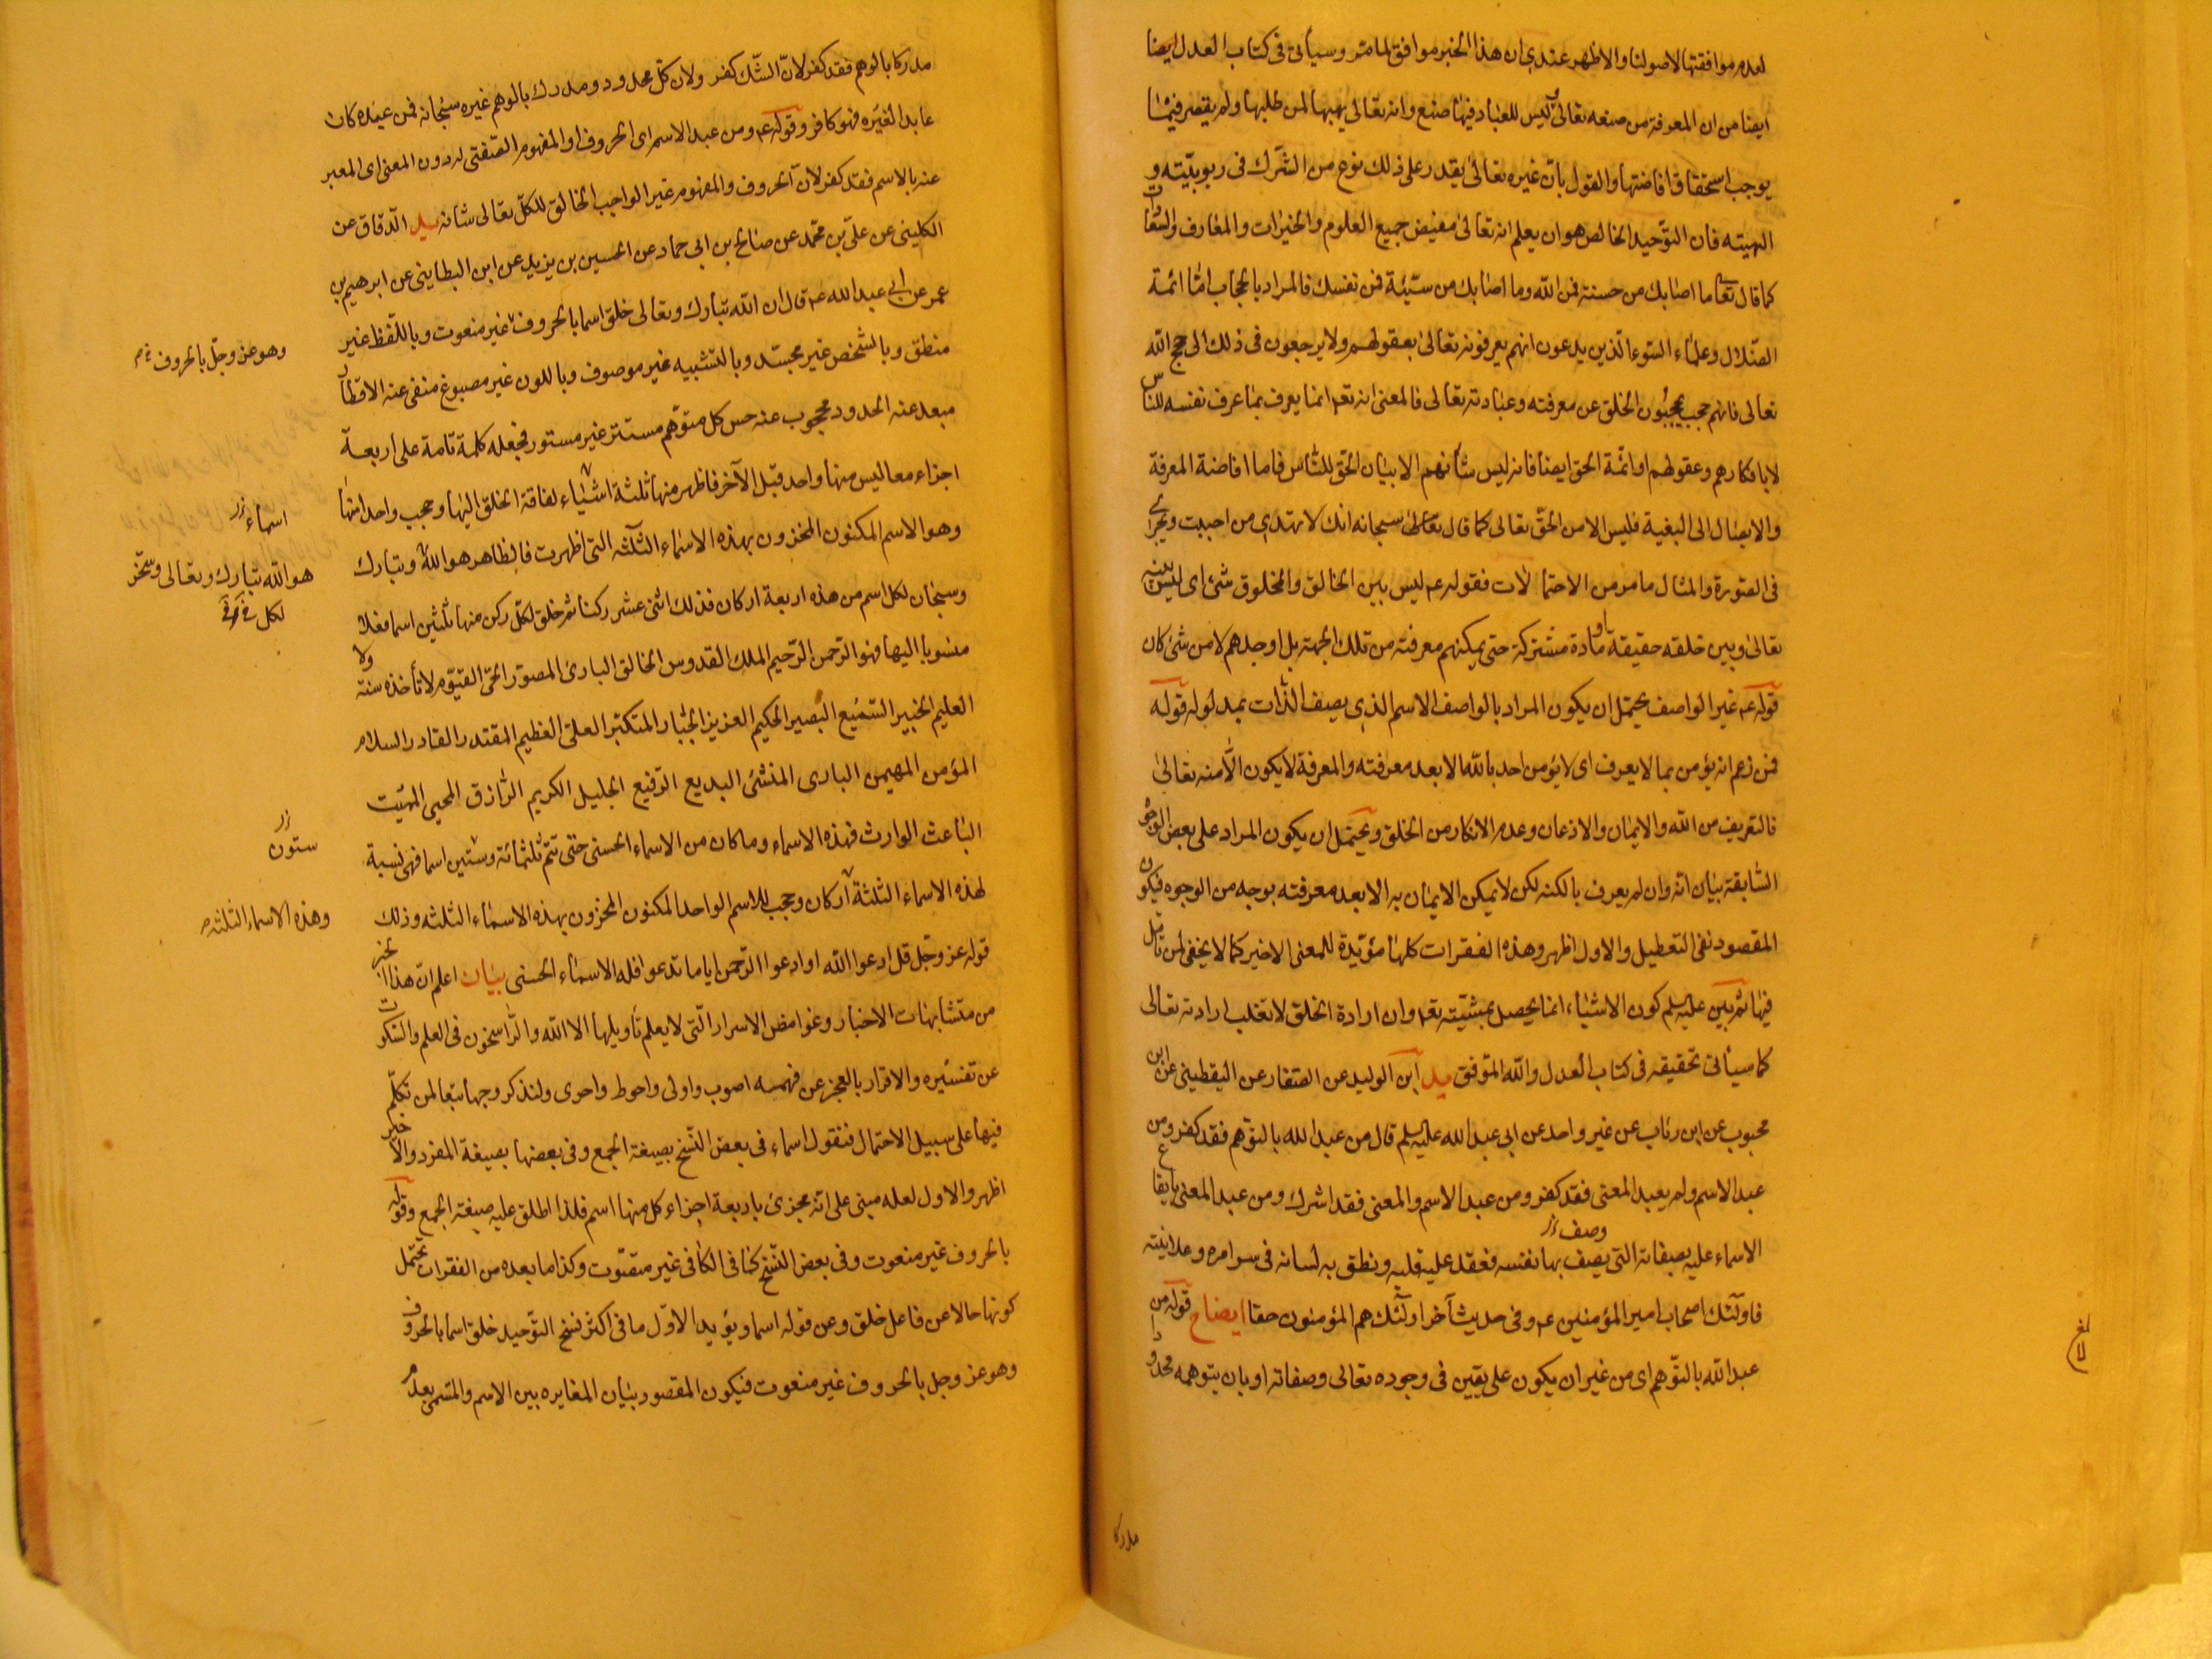 لعدم موافقتها لاصولنا والاظهر عندي ان هذا الخبر موافق لما مر وسيأتى فى كتاب العدل ايضا
ايضا من ان المعرفة من صنعه تعالى وليس للعباد فيها صنع وانه تعالى يهبها لمن طلبها ولم يقصر فيما
يوجب استحقاق افاضتها والقول بان غيره تعالى يقدر على ذلك نوع من الشرك فى ربوبيته و
الهيته فان التوحيد الخالص هو ان يعلم انه تعالى مفيض جميع العلوم والخيرات والمعارف والسعادات
كما قال تعالى ما اصابك من حسنة فمن الله وما اصابك من سيئة فمن نفسك فالمراد بالحجاب اما ائمة
الضلال وعلماء السوء الذين يدعون انهم يعرفونه تعالى بعقولهم ولا يرجعون فى ذلك الى حجج الله
تعالى فانهم حجب يحجبون الخلق عن معرفته وعبادته تعالى فالمعنى انه تعه انما يعرف بما عرف نفسه للناس
لا بافكارهم وعقولهم او ائمة الحق ايضا فانه ليس شأنهم الا بيان الحق للناس فاما افاضة المعرفة
والايصال الى البغية فليس الا من الحق تعالى كما قال سبحانه انك لا تهتدى من احببت ويجرى
فى الصورة والمثال ما مر من الاحتمالات فقوله عم ليس بين الخالق والمخلوق شئ اى ليس بينه
تعالى وبين خلقه حقيقة او مادة مشتركة حتى يمكنهم معرفته من تلك الجهة بل اوجدهم لا من شئ كان
قوله عم غير الواصف يحتمل ان يكون المراد بالواصف الاسم الذى يصف الذات بمدلوله قوله
فمن زعم انه يؤمن بما لا يعرف اى لا يؤمن احد بالله الا بعد معرفته والمعرفة لا يكون الا منه تعالى
فالتعريف من الله والايمان والاذعان وعدم الانكار من الخلق ويحتمل ان يكون المراد على بعض الوجوه
السابقة بيان انه وان لم يعرف بالكنه لكن لا يمكن الايمان به الا بعد معرفته بوجه من الوجوه فيكون
المقصود نفى التعطيل والاول اظهر وهذه الفقرات كلها مؤيدة للمعنى الاخير كما لا يخفى لمن تأمل
فيها ثم بين عليه السلم كون الاشياء انما يحصل بمشيته تعه وان ارادة الخلق لا تغلب ارادته تعالى
كما سيأتى تحقيقه فى كتاب العدل والله الموفق يد ابن الوليد عن الصفار عن اليقطينى عن ابن
محبوب عن ابن رئاب عن غير واحد عن ابى عبد الله عليه السلم قال من عبد الله بالتوهم فقد كفر ومن
عبد الاسم ولم يعبد المعنى فقد كفر ومن عبد الاسم والمعنى فقد اشرك ومن عبد المعنى بايقاع
وصف
الاسماء عليه بصفاته التى يصف بها نفسه فعقد عليه قلبه ونطق به لسانه فى سرامره وعلانيته
فاولئك اصحاب امير المؤمنين عم وفى حديث آخر اولئك هم المؤمنون حقا ايضاح قوله من
عبد الله بالتوهم اى من غير ان يكون على يقين فى وجوده تعالى وصفاته او بان يتوهمه محدودا
مدركا
مدركا بالوهم فقد كفر لان الشك كفر ولان كل محدود ومدرك بالوهم غيره سبحانه فمن عبده كان
عابدا لغيره فهو كافر وقوله عم ومن عبد الاسم اى الحروف او المفهوم الصفتى له دون المعنى اى المعبر
عنه بالاسم فقد كفر لان الحروف والمفهوم غير الواجب الخالق للكل تعالى شانه يد الدقاق عن
الكلينى عن على بن محمد عن صالح بن ابى حماد عن الحسين بن يزيد عن ابن البطاينى عن ابرهيم بن
عمر عن ابى عبد الله عم قال ان الله تبارك وتعالى خلق اسما بالحروف غير منعوت وباللفظ غير
وهو عز وجل بالحروف
منطق وبالشخص غير مجسد وبالتشبيه غير موصوف وباللون غير مصبوغ منفى عنه الاقطار
مبعد عنه الحدود محجوب عنه حس كل متوهم مستتر غير مستور فجعله كلمة تامة على اربعة
اجزاء معا ليس منها واحد قبل الآخر فاظهر منها ثلثة اشياء لفاقة الخلق اليها وحجب واحدا منها
اسماء
وهو الاسم المكنون المخزون بهذه الاسماء الثلثة التى اظهرت فالظاهر هو الله وتبارك
هو الله تبارك وتعالى وسخر
لكل
وسبحان لكل اسم من هذه اربعة اركان فذلك اثنى عشر ركنا ثم خلق لكل ركن منها ثلثين اسما فعلا
منسوبا اليها فهو الرحمن الرحيم الملك القدوس الخالق البارئ المصور الحى القيوم لا تأخذه سنة ولا
العليم الخبير السميع البصير الحكيم العزيز الجبار المتكبر العلى العظيم المقتدر القادر السلام
المؤمن المهيمن البارى المنشئ البديع الرفيع الجليل الكريم الرازق المحيى المميت
الباعث الوارث فهذه الاسماء وما كان من الاسماء الحسنى حتى تتم ثلثمائة وستين اسما فهى نسبة
ستون
لهذه الاسماء الثلثة اركان وحجب للاسم الواحد المكنون المخزون بهذه الاسماء الثلثة وذلك
وهذه الاسماء الثلثة
قوله عز وجل قل ادعوا الله او ادعوا الرحمن اياما تدعوا فله الاسماء الحسنى بيان اعلم ان هذا الخبر
من متشابهات الاخبار وغوامض الاسرار التى لا يعلم تأويلها الا الله والراسخون فى العلم والسكوت
عن تفسيره والاقرار بالعجز عن فهمه اصوب واولى واحوط واحرى ولنذكر وجها تبعا لمن تكلم
فيها على سبيل الاحتمال فنقول اسماء فى بعض النسخ بصيغة الجمع وفى بعضها بصيغة المفرد والاخير
اظهر والاول لعله مبنى على انه مجزئ باربعة اجزاء كل منها اسم فلذا اطلق عليه صيغة الجمع وقوله
بالحروف غير منعوت وفى بعض النسخ كما فى الكافى غير متصوت وكذا ما بعده من الفقرات يحتمل
كونها حالا عن فاعل خلق وعن قوله اسما ويؤيد الاول ما فى اكثر نسخ التوحيد خلق اسما بالحروف
وهو عز وجل بالحروف غير منعوت فيكون المقصود بيان المغايرة بين الاسم والمسمى بعدم